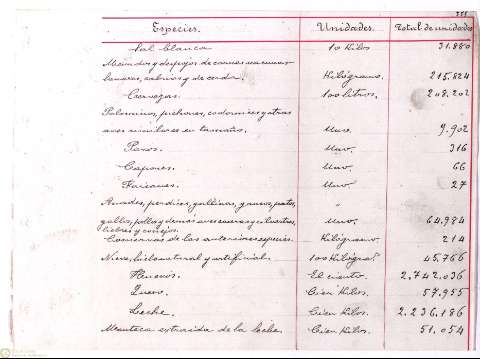 Especies. Unidades. Total de unidades
Sal blanca 10 Kilos 31.880
Menudos y despojos de carnes vacunas
lanares, cabrias y de cerda. Kilógramo. 215.824
Cervezas. 100 litros. 208.202
Palominos, pichones, codornices y otras
aves similares en tamaño. Uno. 9.902
Pavos. Uno. 316
Capones. Uno. 66
Faisanes. Uno. 27
Anades, perdices, gallinas, gansos, patos,
gallos, pollos y demas aves caseras y silvestres, Uno. 64.984
liebres y conejos.
Conservas de las anteriores especies. Kilógramo. 214
Nieve, hielo natural y artificial. 100 Kilógs. 45.766
Huevos. El ciento. 2,742.036
Queso. Cien Kilos. 57.955
Leche. Cien Kilos. 2.236.186
Manteca extraida de la leche. Cien Kilos. 51.054